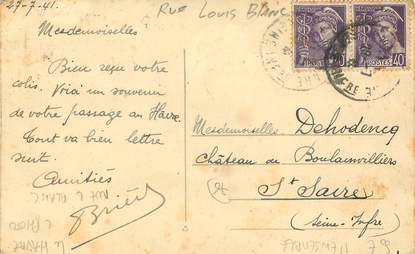 27-7-41.
RUE LOUIS BLANC
Mesdemoiselles
Bien reçu votre
colis. Voià un souvenir
de votre passage au Havre
Tout va bien lettre
suit.
Amitiés
POSTES 40
POSTES 40
Mesdemoiselles Dehodencq
Château de Boulainvilliers
St Saire
(Seine-Infre)
LE HAVRE
76